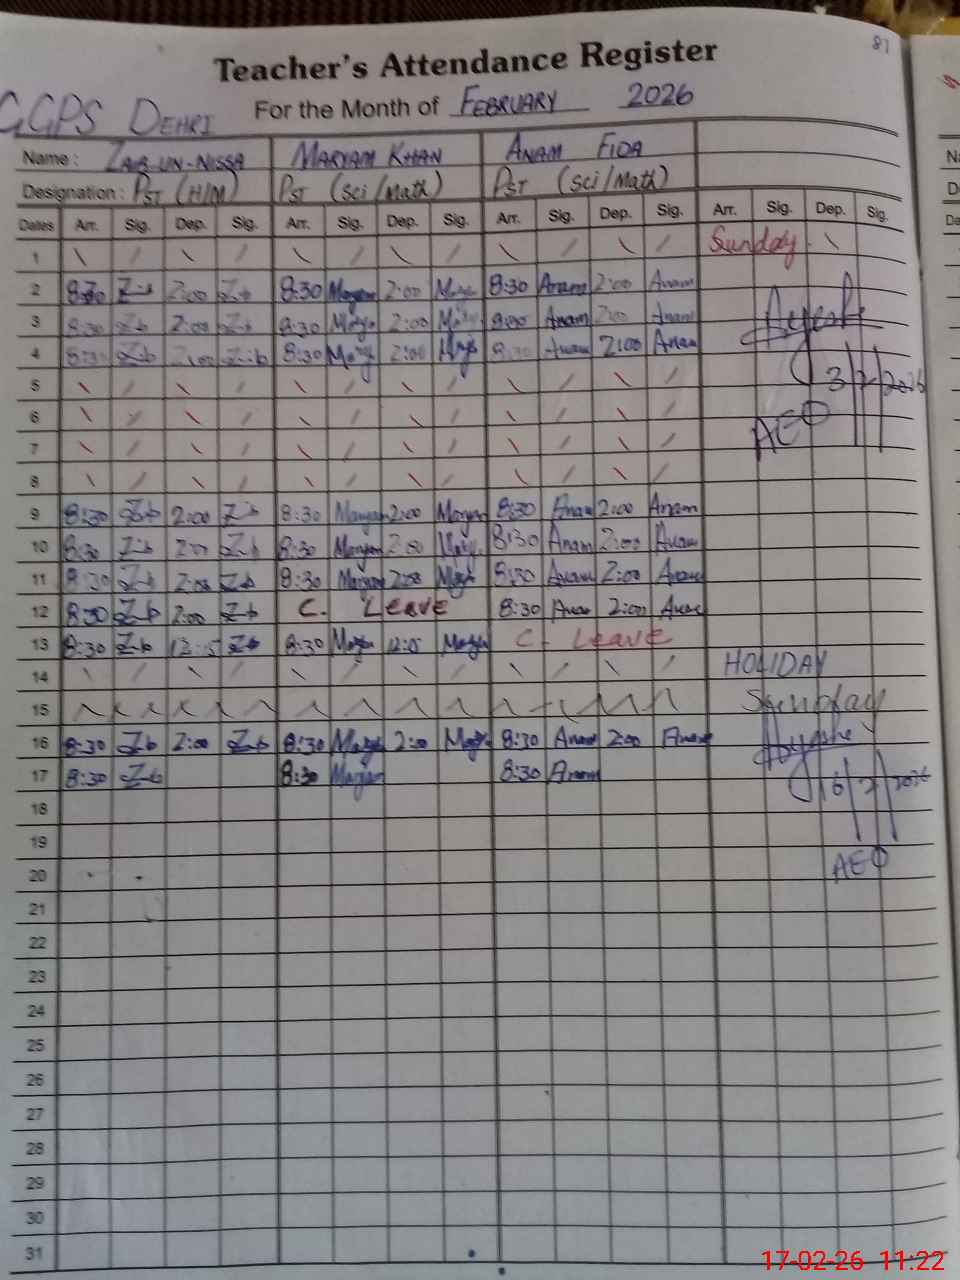 81
Teacher's Attendance Register
GGPS DEHRI For the Month of FEBRUARY 2026
Name : ZAIB-UN-NISSA MARYAM KHAN ANAM FIDA
Designation : PST (H/M) PST (Sci/Math) PST (Sci/Math)
Dates Arr. Sig. Dep. Sig. Arr. Sig. Dep. Sig. Arr. Sig. Dep. Sig. Arr. Sig. Dep. Sig.
1 Sunday
2 8:30 Z-b 2:00 Z-b 8:30 Maryam 2:00 8:30 Anam 2:00 Anam
3 8:30 Z-b 2:00 Z-b 8:30 2:00 8:30 Anam 2:00 Anam Ayesha
4 8:30 Z-b 2:00 Z-b 8:30 2:00 8:30 Anam 2:00 Anam
5 3/2/2026
6 AEO
7
8
9 8:30 Z-b 2:00 Z-b 8:30 Maryam 2:00 Maryam 8:30 Anam 2:00 Anam
10 8:30 Z-b 2:00 Z-b 8:30 Maryam 2:00 8:30 Anam 2:00 Anam
11 8:30 Z-b 2:00 Z-b 8:30 Maryam 2:00 8:30 Anam 2:00 Anam
12 8:30 Z-b 2:00 Z-b C. Leave 8:30 Anam 2:00 Anam
13 8:30 Z-b 12:15 Z-b 8:30 12:15 C. Leave
14 HOLIDAY
15 Sunday
16 8:30 Z-b 2:00 Z-b 8:30 2:00 8:30 Anam 2:00 Anam Ayesha
17 8:30 Z-b 8:30 Maryam 8:30 Anam 16/2/2026
18
19
20 AEO
21
22
23
24
25
26
27
28
29
30
31
17-02-26 11:22